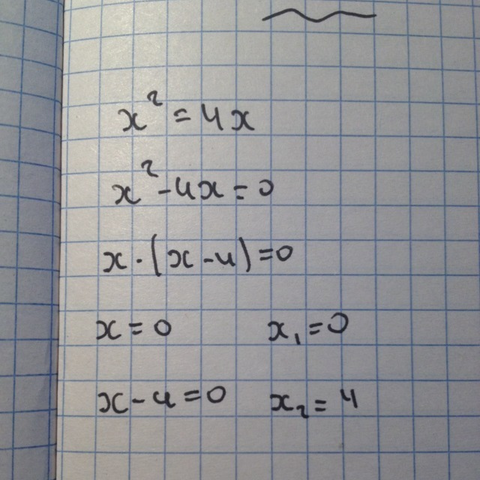 x² = 4x
x² - 4x = 0
x · (x - 4) = 0
x = 0 x₁ = 0
x - 4 = 0 x₂ = 4